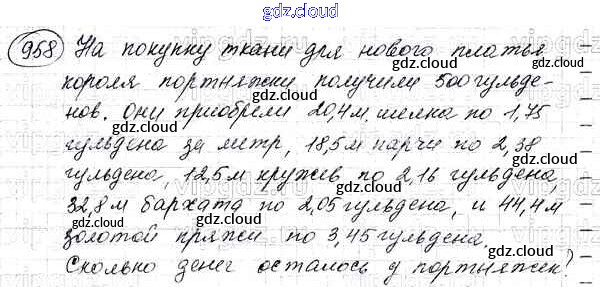 gdz.cloud
958 На покупку ткани для нового платья
gdz.cloud gdz.cloud
короля портняжки получили 500 гульде-
gdz.cloud gdz.cloud
нов. Они приобрели 20,4 м. шелка по 1,75
gdz.cloud gdz.cloud
гульдена за метр, 18,5 м парчи по 2,38
gdz.cloud gdz.cloud
гульдена, 12,5 м кружев по 2,16 гульдена,
gdz.cloud gdz.cloud
32,8 м бархата по 2,05 гульдена, и 44,4 м
gdz.cloud gdz.cloud
золотой пряжи по 3,45 гульдена.
gdz.cloud gdz.cloud
Сколько денег осталось у портняжек?
gdz.cloud gdz.cloud